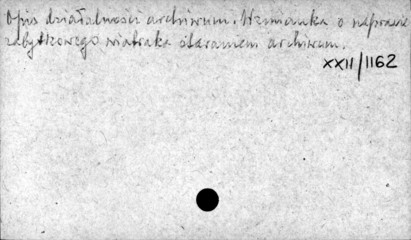 Opis działalności archiwum. Wzmianka o naprawie
zabytkowego wiatraka staraniem archiwum.
XXII/1162